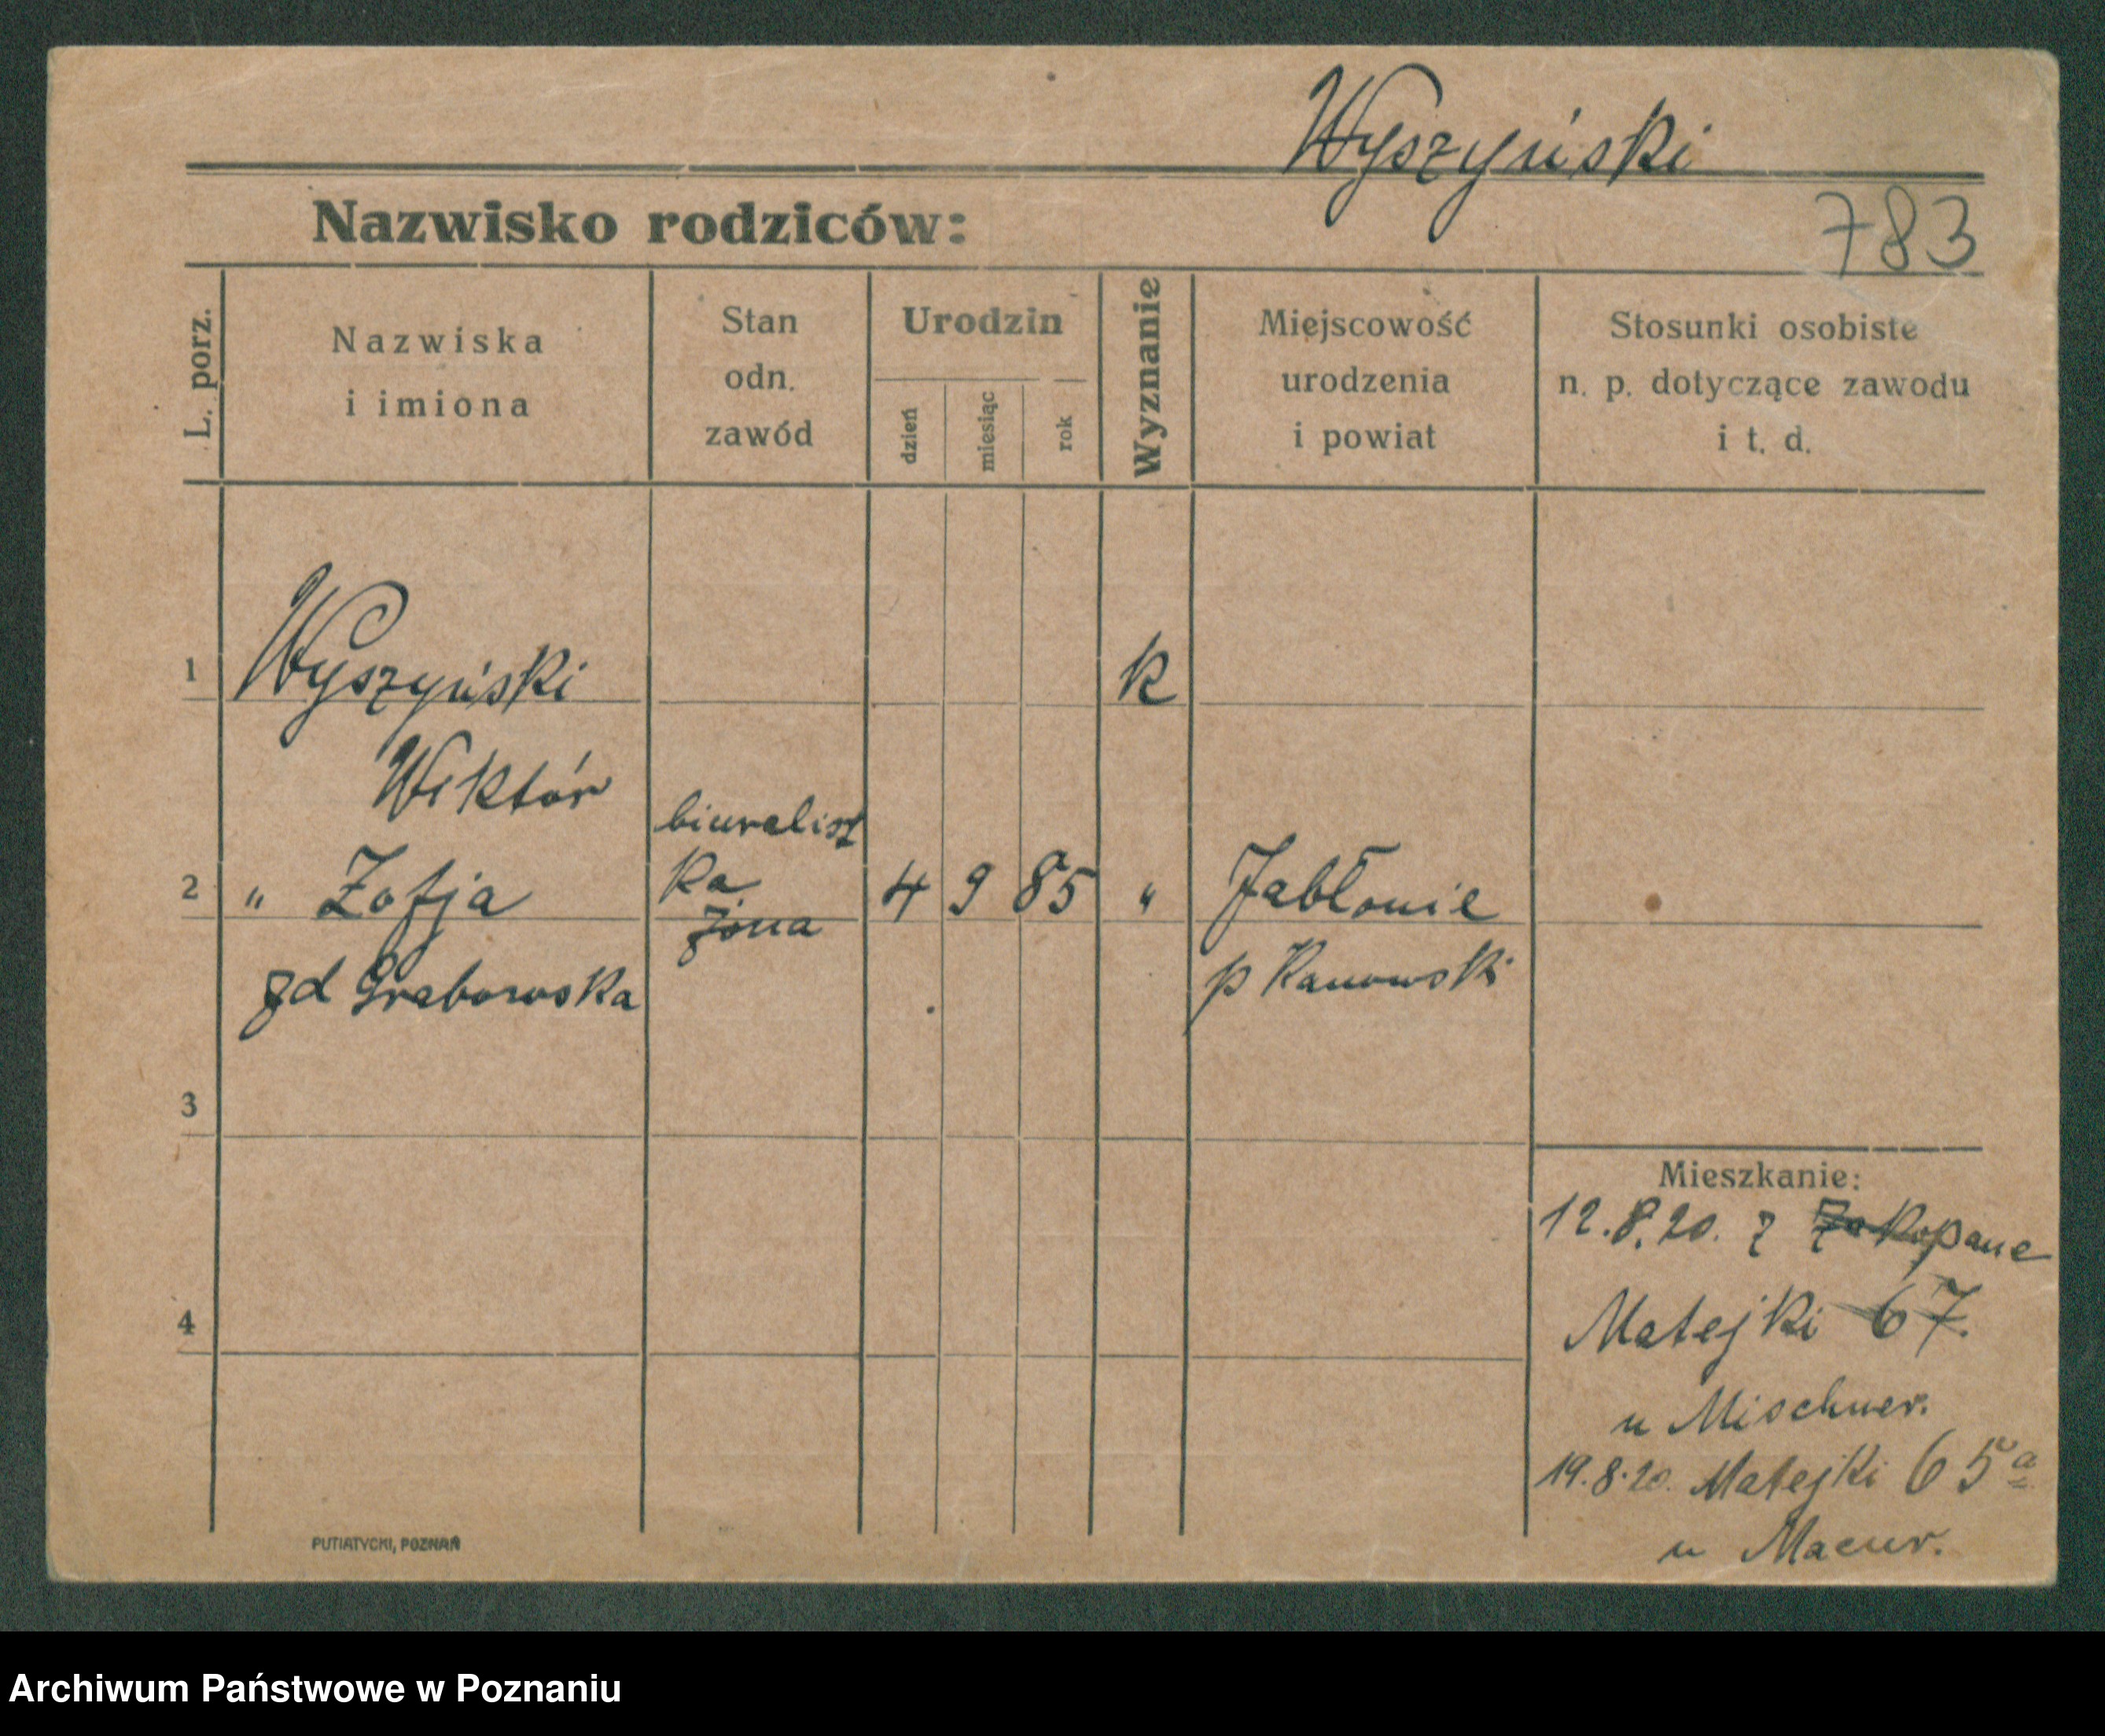 Wyszyński
Nazwisko rodziców:
783
L. porz.
Nazwiska
i imiona
Stan
odn.
zawód
Urodzin
dzień
miesiąc
rok
Wyznanie
Miejscowość
urodzenia
i powiat
Stosunki osobiste
n. p. dotyczące zawodu
i t. d.
1 Wyszyński k
Wiktór
biuralist
2 " Zofja ka 4 9 85 " Jabłonie
żona
zd Grabowska p Kanowski
3
Mieszkanie:
12.8.20. z Zakopane
4 Matejki 67.
u Mischner.
19.8.20. Matejki 65a
u Macur.
PUTIATYCKI, POZNAŃ
Archiwum Państwowe w Poznaniu